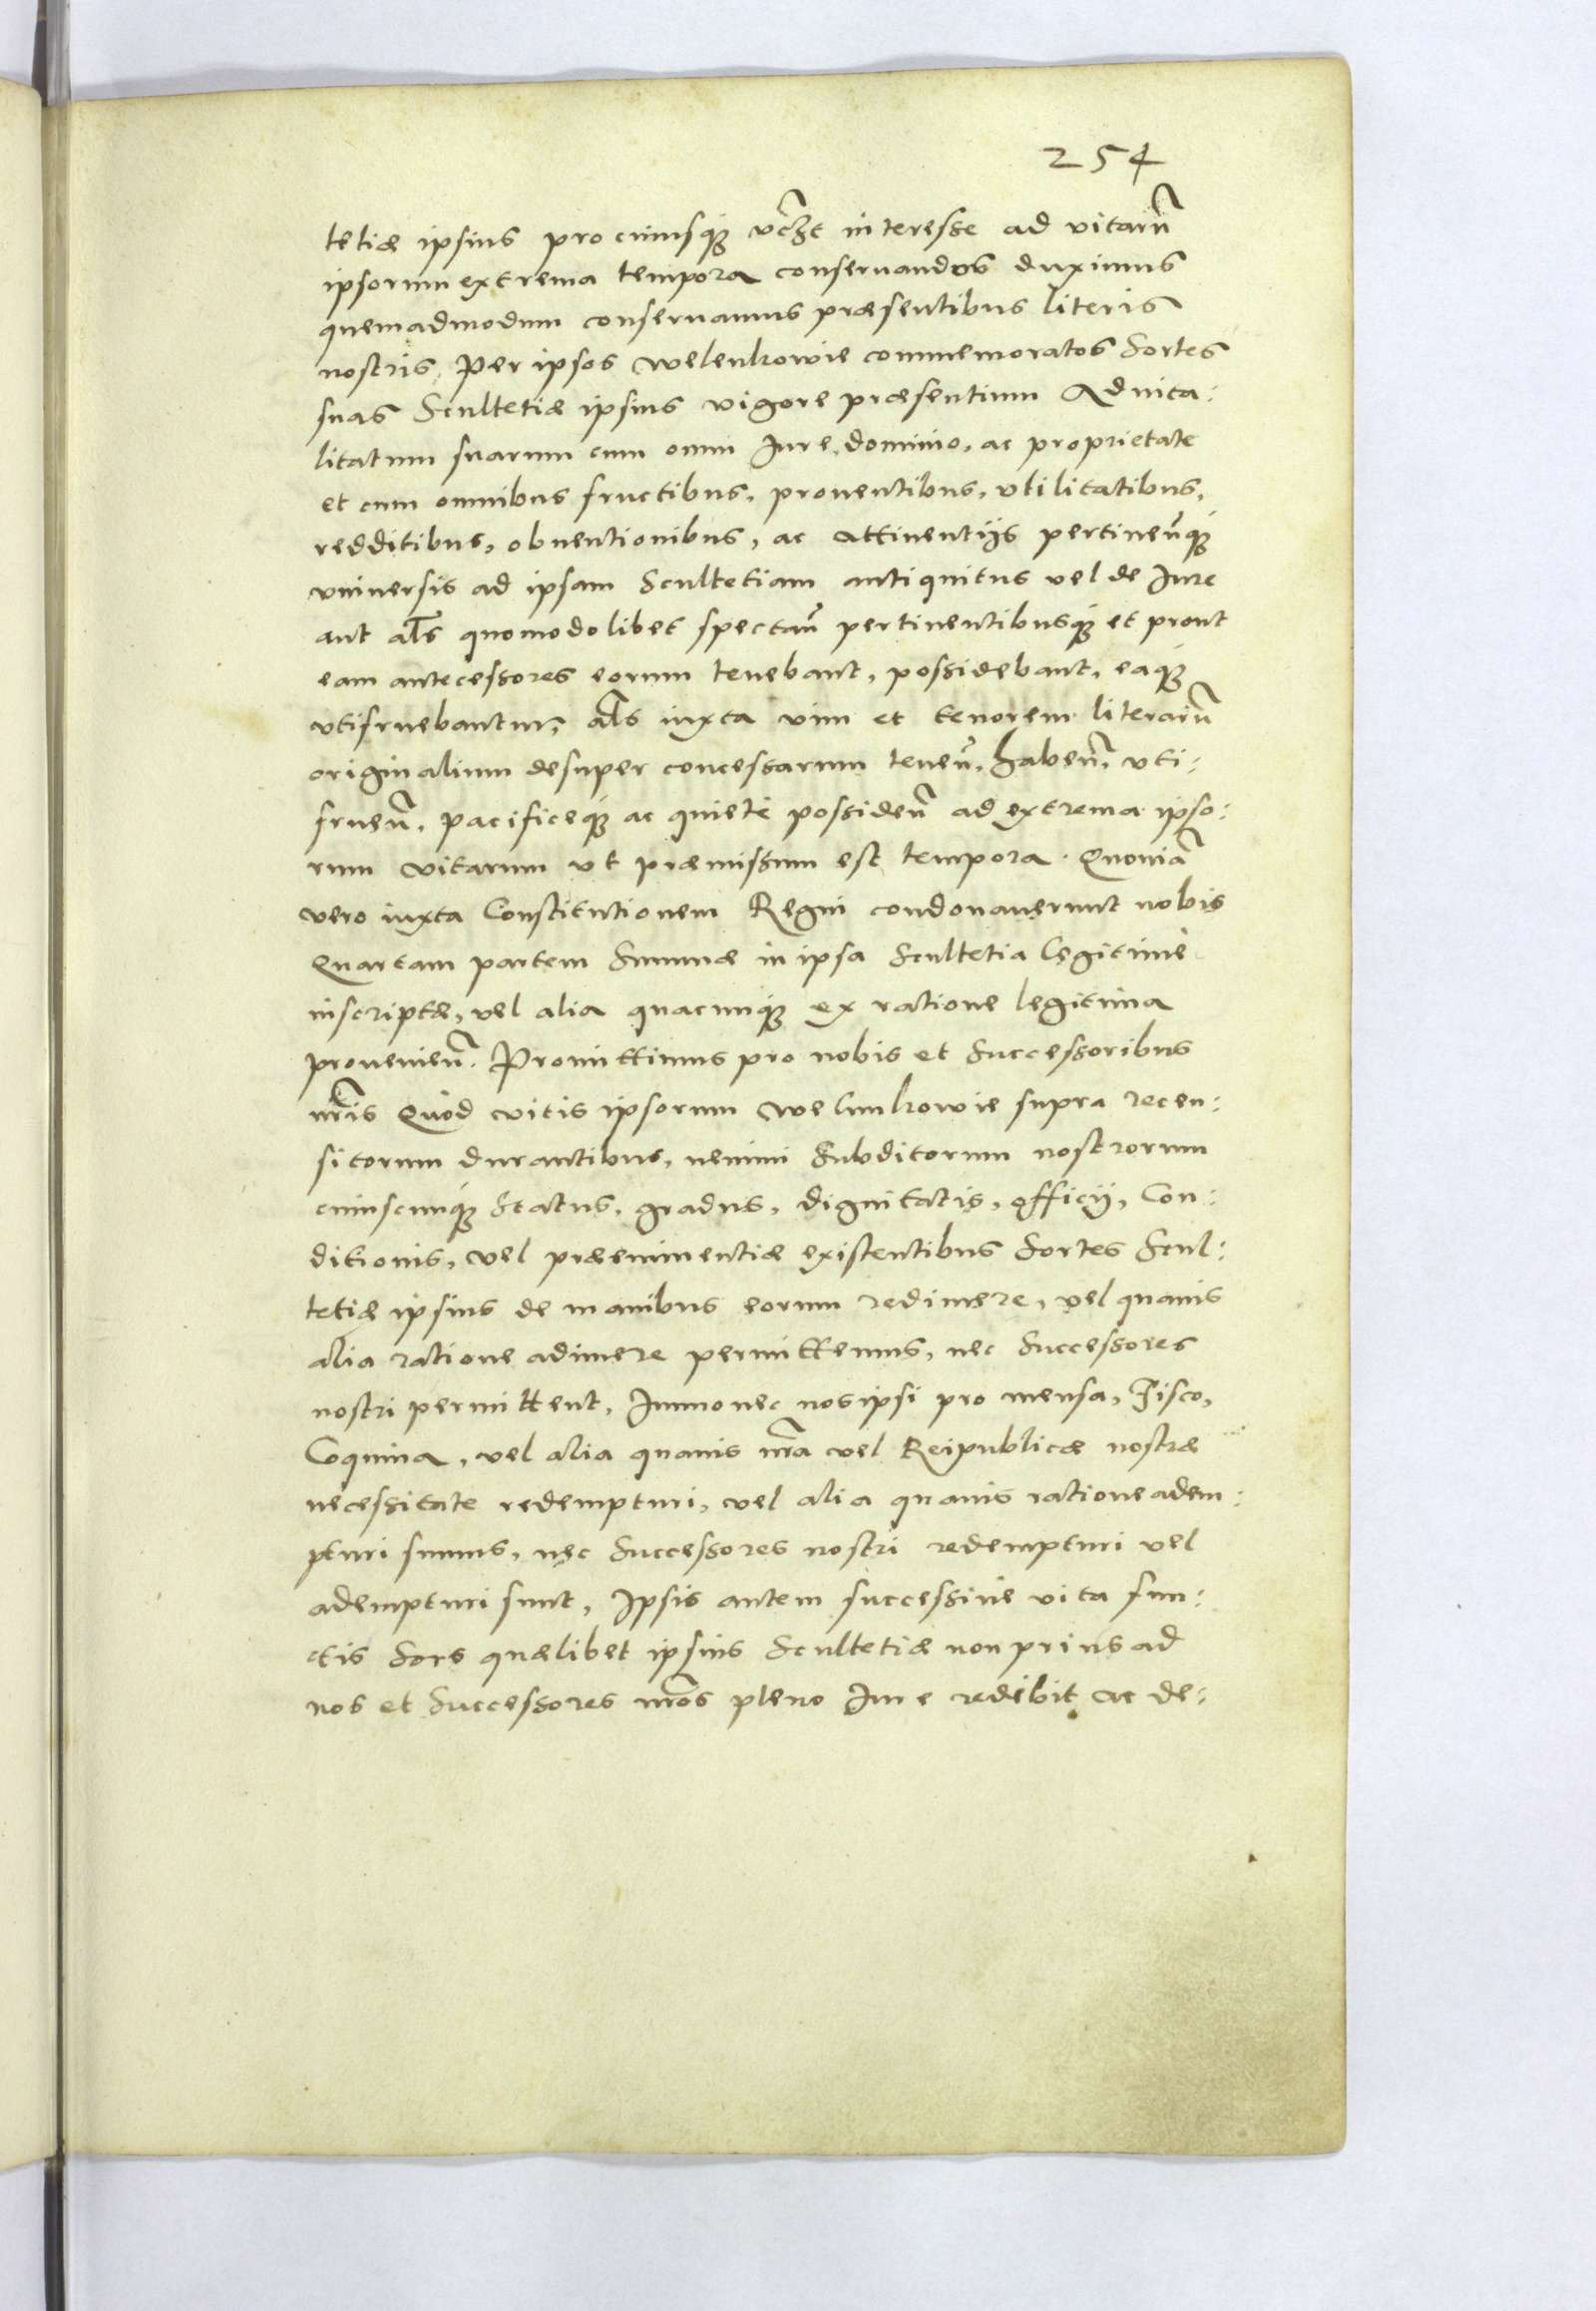 254
tetiæ ipsius pro cuiusq interesse ad vitarũ
ipsorum extrema tempora conseruandos duximus
quemadmodum conseruamus præsentibus literis
nostris. Per ipsos Welenkowie commemoratos Sortes
suas Scultetiæ ipsius vigore præsentium Aduita:
litatum suarum cum omni Iure, dominio, ac proprietate
et cum omnibus fructibus, prouentibus, vtilitatibus,
redditibus, obuentionibus, ac attinentijs pertinen̄q
vniuersis ad ipsam Scultetiam antiquitus vel de Iure
aut als quomodolibet spectan̄ pertinentibusq et prout
eam antecessores eorum tenebant, possidebant, eaq
vtifruebantur, als iuxta vim et tenorem literarũ
originalium desuper concessarum tenen̄, haben̄, vti:
fruen̄, pacificeq ac quietè possiden̄ ad extrema ipso:
rum vitarum vt præmissum est tempora. Quoniã
vero iuxta Constitutionem Regni condonauerunt nobis
Quartam partem Summæ in ipsa Scultetia Legitimè
inscriptæ, vel alia quacunq ex ratione legitima
prouenien̄. Promittimus pro nobis et Successoribus
nr̃is Quod vitis ipsorum Welunkowie supra recen:
sitorum durantibus, nemini Subditorum nostrorum
cuiuscunq Status, gradus, dignitatis, officij, Con:
ditionis, vel præeminentiæ existentibus Sortes Scul:
tetiæ ipsius de manibus eorum redimere, vel quauis
alia ratione adimere permittemus, nec Successores
nostri permittent, Immo nec nosipsi pro mensa, Fisco,
Coquina, vel alia quauis nr̃a vel Reipublicæ nostræ
necessitate redempturi, vel alia quauis ratione adem:
pturi sumus, nec Successores nostri redempturi vel
adempturi sunt, Ipsis autem successiue vita fun:
ctis Sors quælibet ipsius Scultetiæ non prius ad
nos et Successores nr̃os pleno Iure redibit ac de: